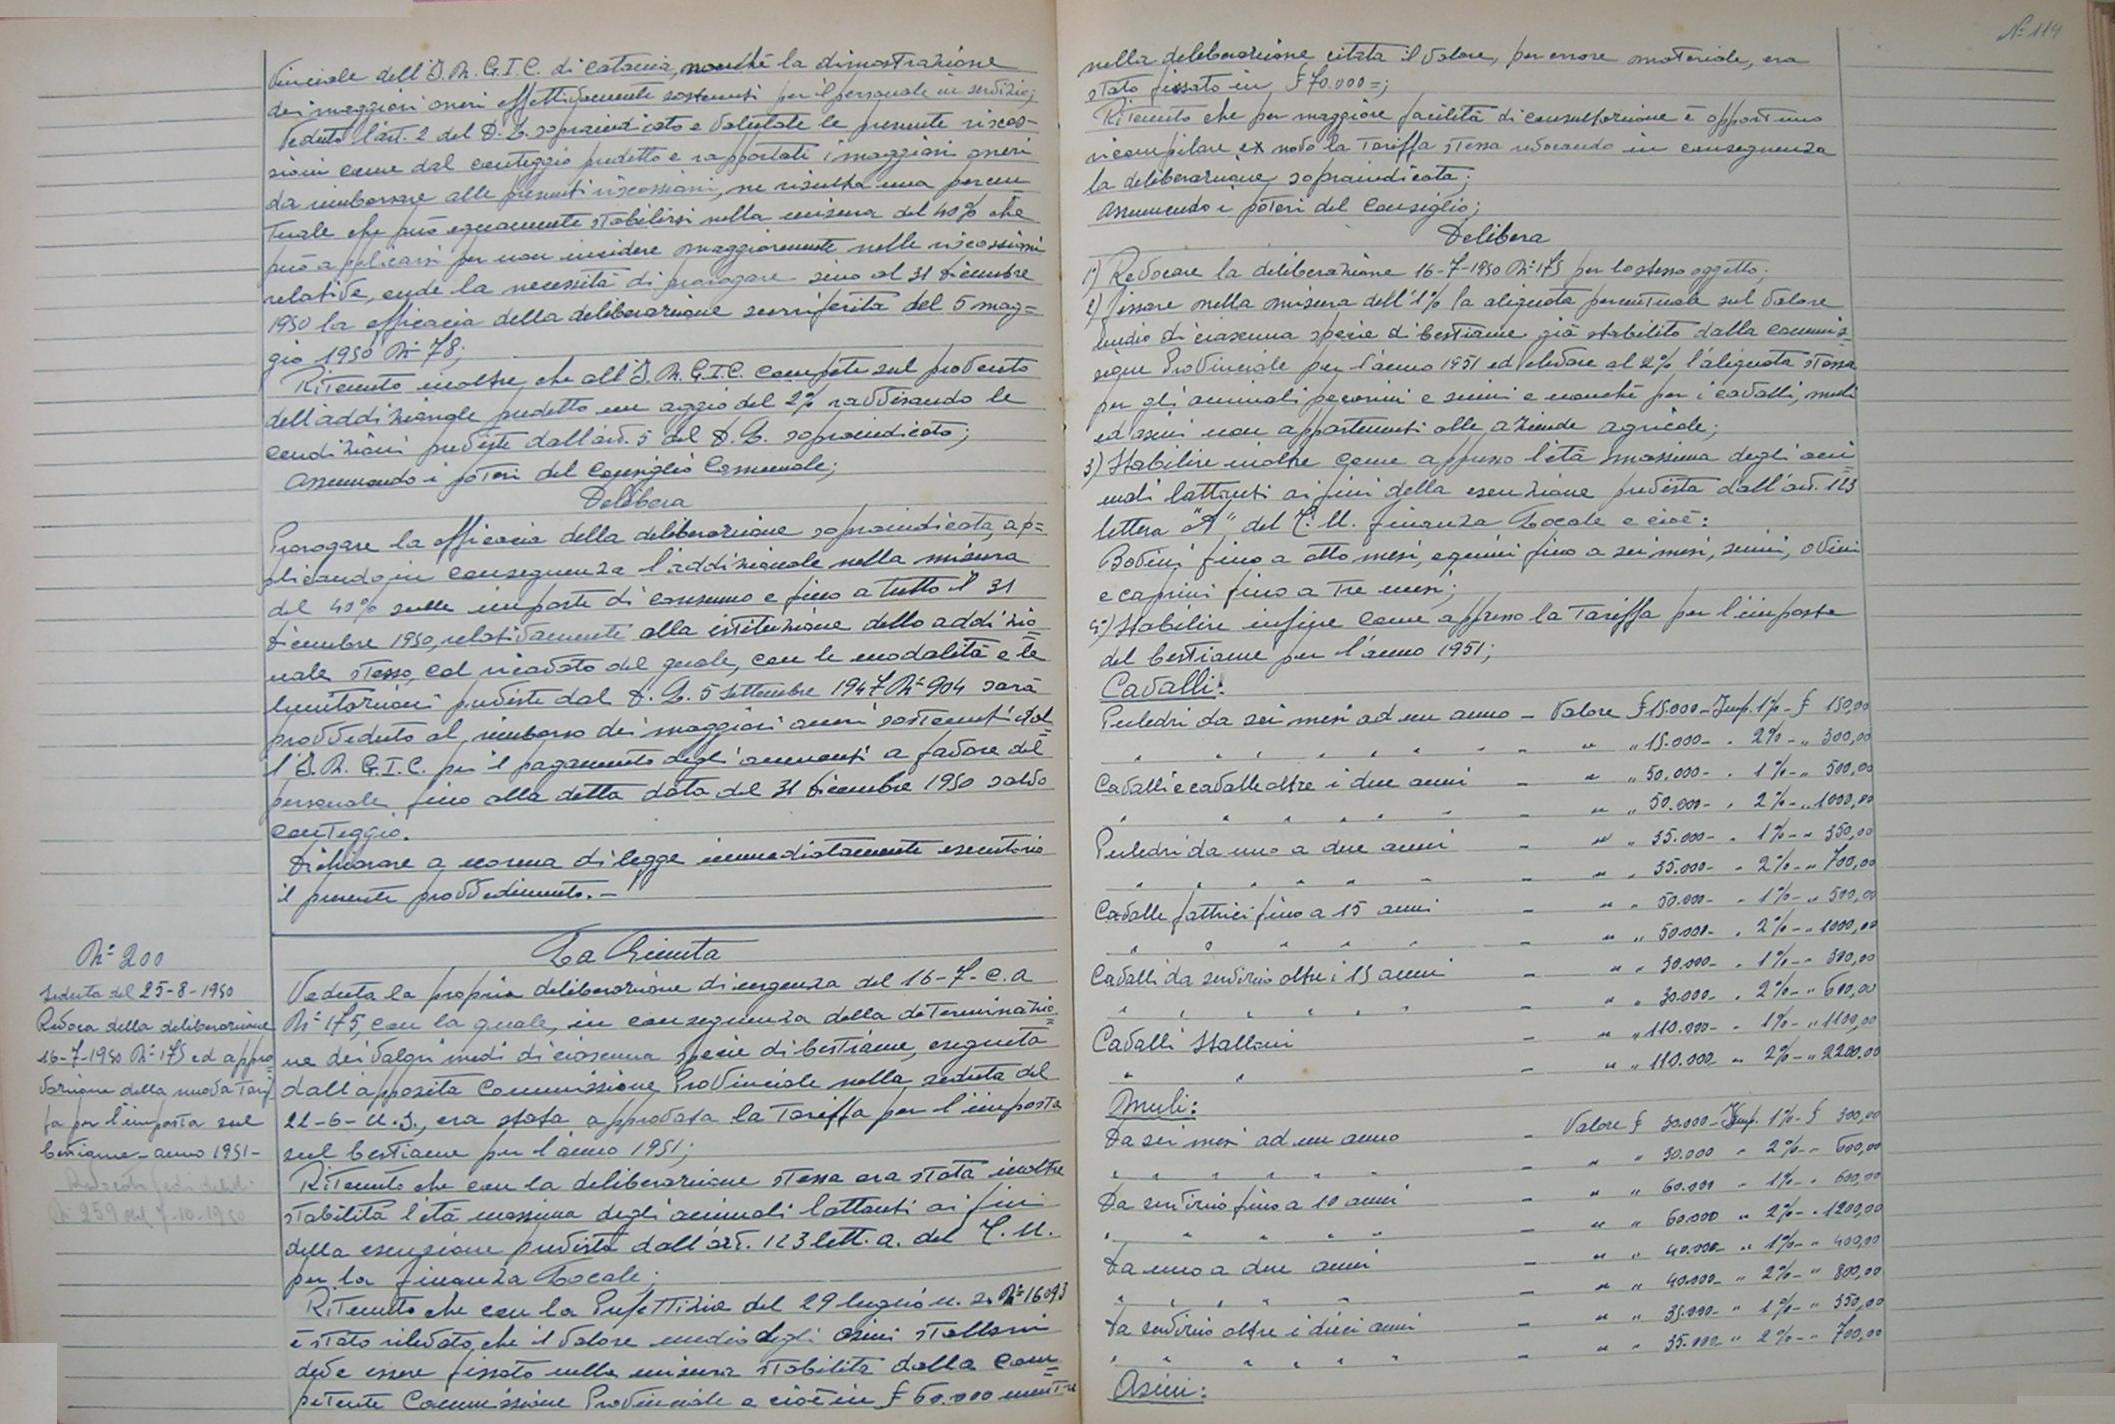 vinciale dell'I.N.G.I.C. di Catania, nonchè la dimostrazione
dei maggiori oneri effettivamente sostenuti per il personale in servizio;
Veduto l'art. 2 del D.L. sopraindicato e valutate le presunte riscos-
sioni come dal conteggio predetto e rapportati i maggiori oneri
da rimborsare alle presunti riscossioni, ne risulta una percen
tuale che può equamente stabilirsi nella misura del 40% che
può applicarsi per non incidere maggiormente nelle riscossioni
relative, onde la necessità di prorogare sino al 31 dicembre
1950 la efficacia della deliberazione surriferita del 5 mag=
gio 1950 N° 78;
Ritenuto inoltre che all'I.N.G.I.C. compete sul provento
dell'addizionale predetto un aggio del 2% ravvisando le
condizioni previste dall'art. 5 del D.L. sopraindicato;
Assumendo i poteri del Consiglio Comunale;
Delibera
Prorogare la efficacia della deliberazione sopraindicata, ap=
plicando in conseguenza l'addizionale nella misura
del 40% sulle imposte di consumo e fino a tutto il 31
dicembre 1950, relativamente alla istituzione dello addizio
nale stesso, col ricavato del quale, con le modalità e le
limitazioni previste dal D.L. 5 settembre 1947 N° 904 sarà
provveduto al rimborso dei maggiori oneri sostenuti dal
l'I.N.G.I.C. per il pagamento degli aumenti a favore del
personale fino alla detta data del 31 dicembre 1950 salvo
conteggio.
Dichiarare a norma di legge immediatamente esecutorio
il presente provvedimento.-
N° 200
Seduta del 25-8-1950
Revoca della deliberazione
16-7-1950 N° 175 ed appro
vazione della nuova tarif
fa per l'imposta sul
bestiame - anno 1951-
N° 259 del 7-10-1950
La Giunta
Veduta la propria deliberazione di urgenza del 16-7-c.a
N° 175, con la quale, in conseguenza della determinazio
ne dei valori medi di ciascuna specie di bestiame, eseguita
dall'apposita Commissione Provinciale nella seduta del
22-6-u.s., era stata approvata la tariffa per l'imposta
sul bestiame per l'anno 1951;
Ritenuto che con la deliberazione stessa era stata inoltre
stabilita l'età massima degli animali lattanti ai fini
della esenzione prevista dall'art. 123 lett. a. del T.U.
per la finanza Locale;
Ritenuto che con la Prefettizia del 29 luglio u.s. N° 16093
è stato rilevato che il valore medio degli asini stalloni
deve essere fissato nella misura stabilita dalla com=
petente Commissione Provinciale e cioè in £ 60.000 mentre
N° 114
nella deliberazione citata il valore, per errore materiale, era
stato fissato in £ 70.000=;
Ritenuto che per maggiore facilità di consultazione è opportuno
ricompilare ex novo la tariffa stessa revocando in conseguenza
la deliberazione sopraindicata;
Assumendo i poteri del Consiglio;
Delibera
1°) Revocare la deliberazione 16-7-1950 N° 175 per lo stesso oggetto.
2) Fissare nella misura dell'1% la aliquota percentuale sul valore
medio di ciascuna specie di bestiame già stabilito dalla Commis=
sione Provinciale per l'anno 1951 ed elevare al 2% l'aliquota stessa
per gli animali pecorini e suini e nonchè per i cavalli, muli
ed asini non appartenenti alle aziende agricole;
3) Stabilire inoltre come appresso l'età massima degli ani
mali lattanti ai fini della esenzione prevista dall'art. 123
lettera "A" del T.U. Finanza Locale e cioè:
Bovini fino a otto mesi, equini fino a sei mesi, suini, ovini
e caprini fino a tre mesi;
4°) Stabilire infine come appresso la tariffa per l'imposta
del bestiame per l'anno 1951;
Cavalli:
Puledri da sei mesi ad un anno - Valore £ 15.000 - Imp. 1% - £ 150,00
" " " " " " " - " " 15.000 - " 2% - " 300,00
Cavalli e cavalle oltre i due anni - " " 50.000 - " 1% - " 500,00
" " " " " " - " " 50.000 - " 2% - " 1000,00
Puledri da uno a due anni - " " 35.000 - " 1% - " 350,00
" " " " " " - " " 35.000 - " 2% - " 700,00
Cavalle fattrici fino a 15 anni - " " 50.000 - " 1% - " 500,00
" " " " " - " " 50.000 - " 2% - " 1000,00
Cavalli da servizio oltre i 15 anni - " " 30.000 - " 1% - " 300,00
" " " " " " - " " 30.000 - " 2% - " 600,00
Cavalli Stalloni - " " 110.000 - " 1% - " 1100,00
" " - " " 110.000 " 2% - " 2200.00
Muli:
Da sei mesi ad un anno - Valore £ 30.000 - Imp. 1% - £ 300,00
" " " " " - " " 30.000 " 2% - " 600,00
Da servizio fino a 10 anni - " " 60.000 " 1% - " 600,00
" " " " " - " " 60.000 " 2% - " 1200,00
Da uno a due anni - " " 40.000 - " 1% - " 400,00
" " " " " - " " 40.000 - " 2% - " 800,00
Da servizio oltre i dieci anni - " " 35.000 - " 1% - " 350,00
" " " " " " - " " 35.000 " 2% - " 700,00
Asini: